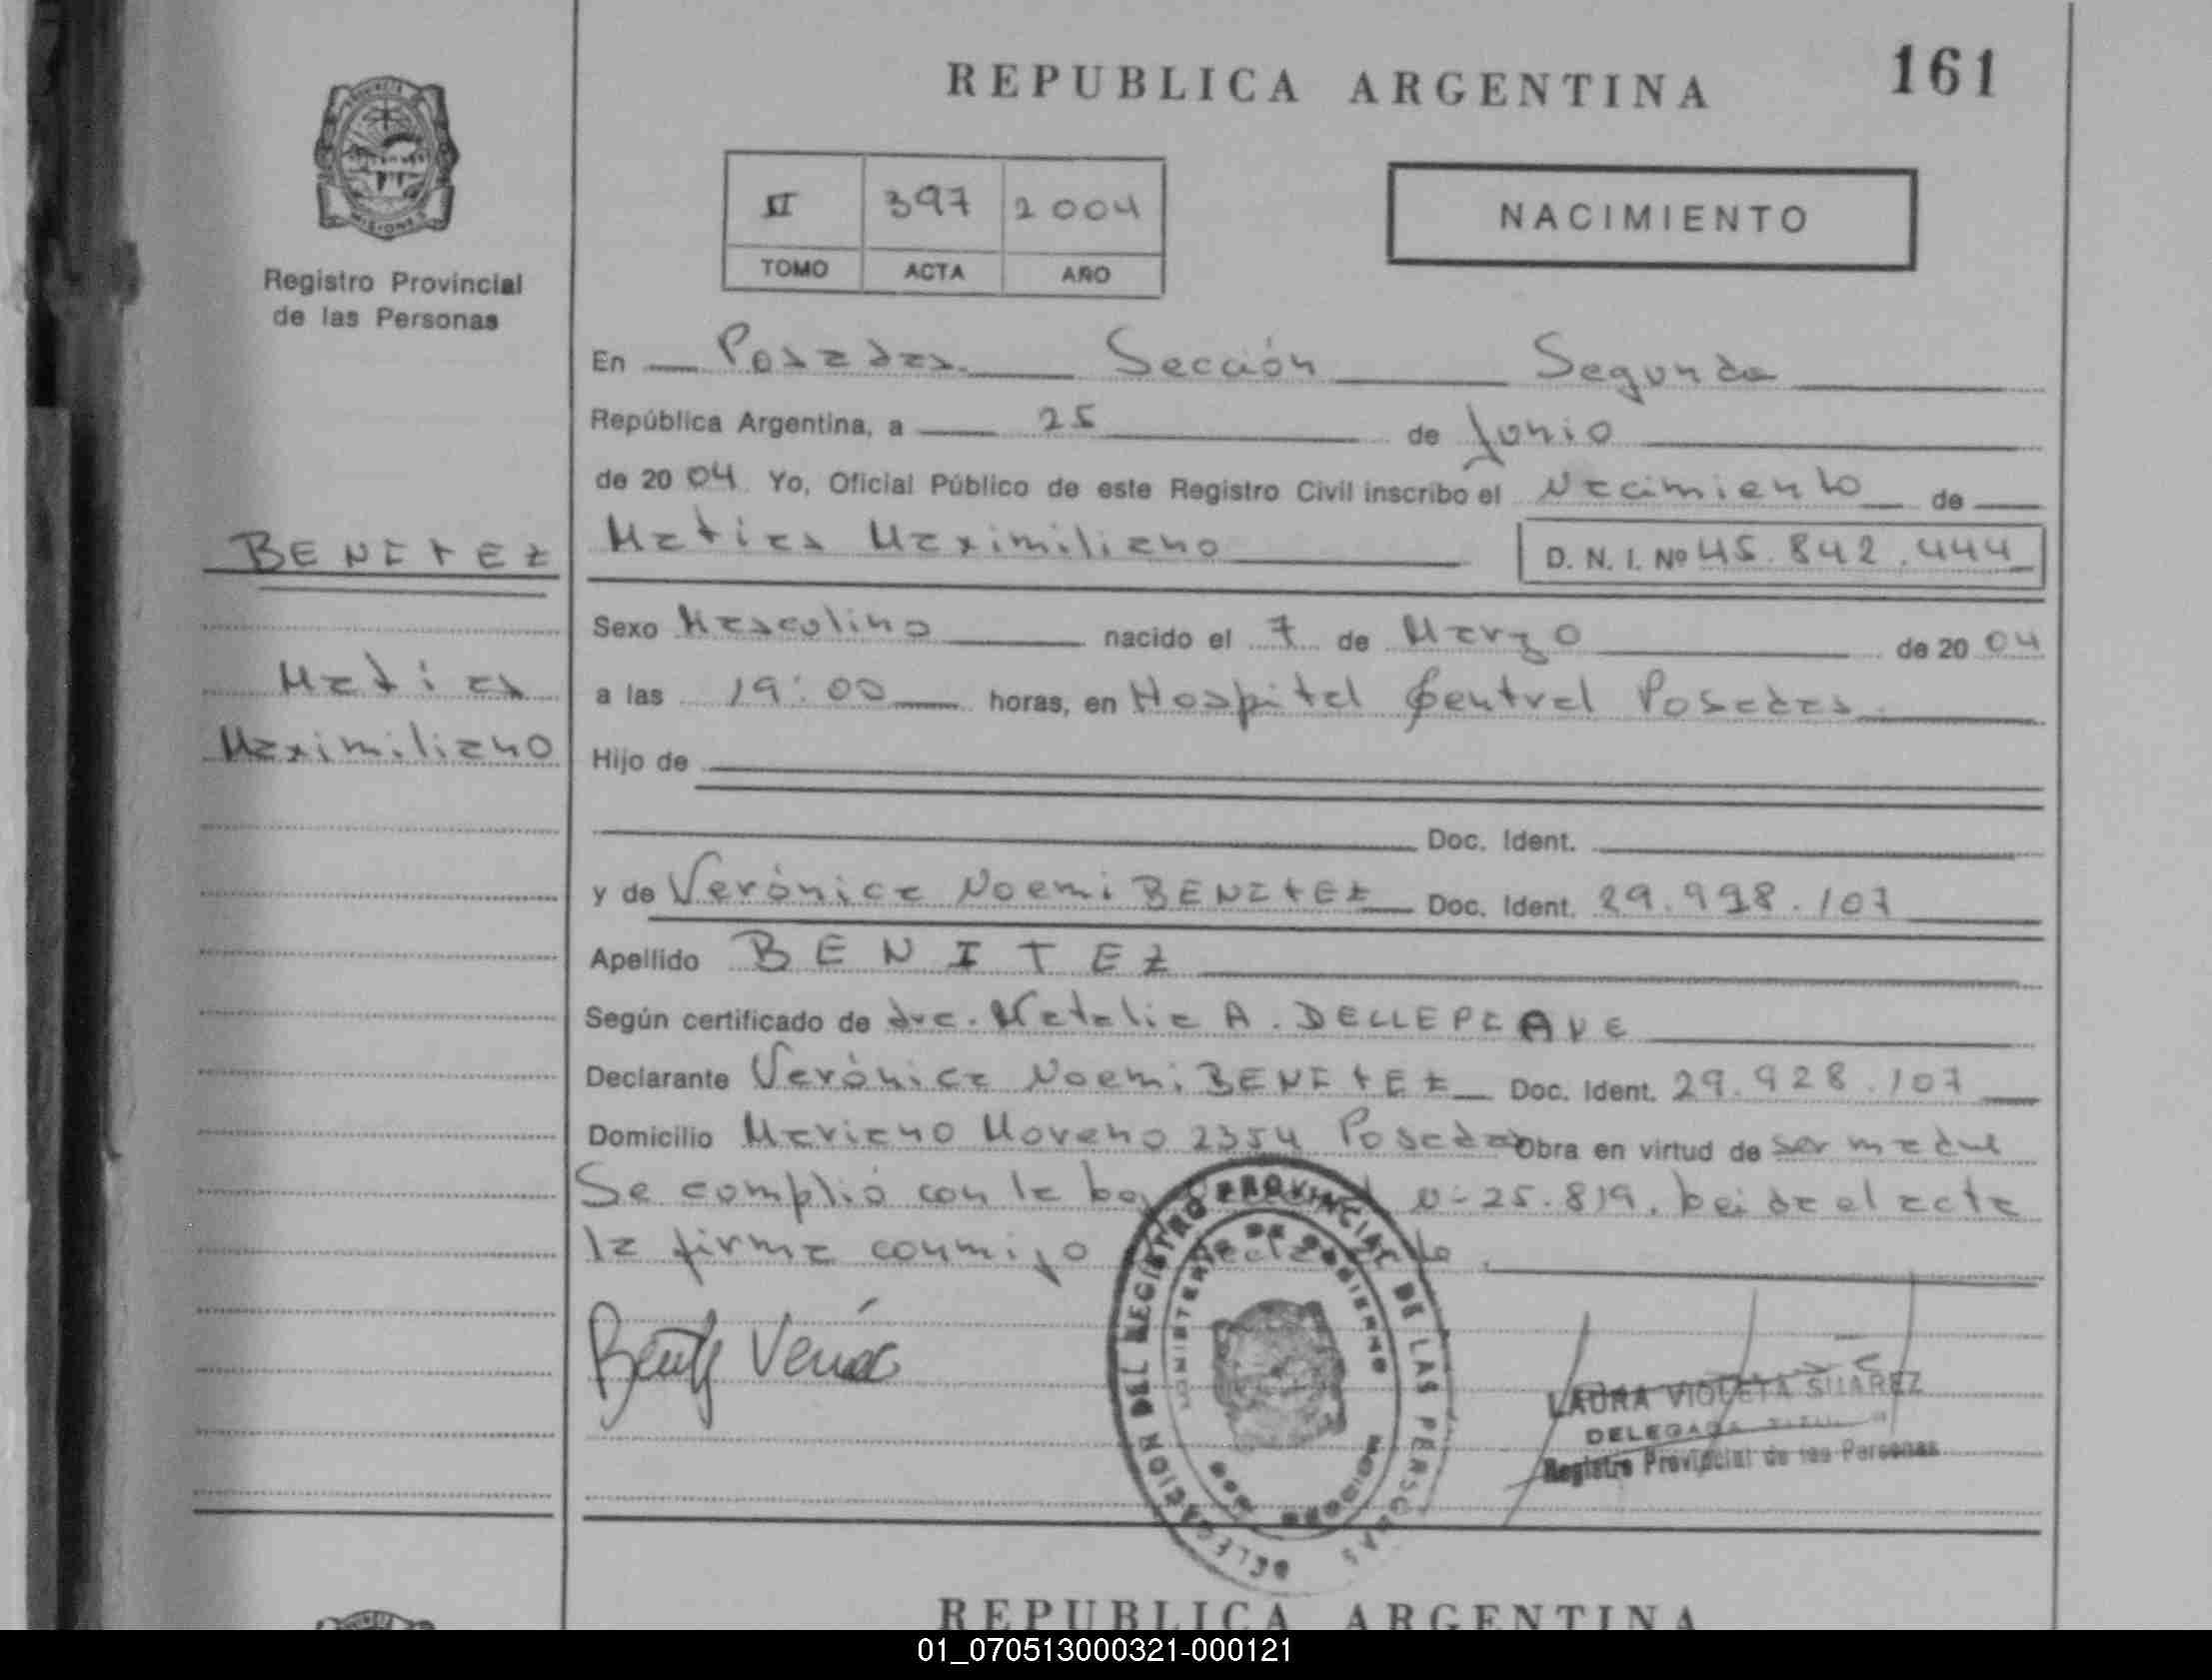 REPUBLICA ARGENTINA
161
II 397 2004
TOMO ACTA AÑO
NACIMIENTO
Registro Provincial
de las Personas
En Posadas Sección Segunda
República Argentina, a 25 de Junio
de 2004 Yo, Oficial Público de este Registro Civil inscribo el Nacimiento de
BENITEZ
Matias Maximiliano D. N. I. Nº 45.842.444
Sexo Masculino nacido el 7 de Marzo de 2004
Matias
a las 19:00 horas, en Hospital Central Posadas
Maximiliano
Hijo de
Doc. Ident.
y de Verónica Noemi BENITEZ Doc. Ident. 29.998.107
Apellido BENITEZ
Según certificado de dra. Natalia A. DELLEPIANE
Declarante Verónica Noemi BENITEZ Doc. Ident. 29.928.107
Domicilio Mariano Moreno 2354 Posadas Obra en virtud de ser madre
Se complió con la 25.819. Leida el acta
la firma conmigo
DELEGACION DEL REGISTRO PROVINCIAL DE LAS PERSONAS
MINISTERIO DE GOBIERNO
MISIONES
LAURA VIOLETA SUAREZ
DELEGADA
Registro Provincial de las Personas
REPUBLICA ARGENTINA
01_070513000321-000121